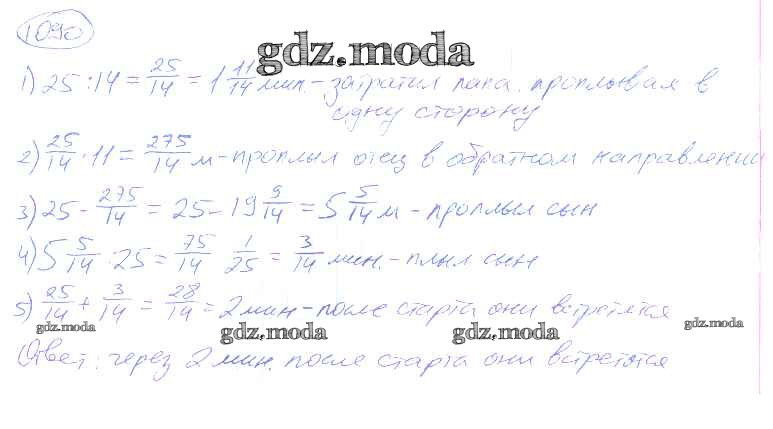 1090
gdz.moda
1) 25 : 14 = 25/14 = 1 11/14 мин. - затратил папа, проплывая в
одну сторону
2) 25/14 · 11 = 275/14 м - проплыл отец в обратном направлении
3) 25 - 275/14 = 25 - 19 9/14 = 5 5/14 м - проплыл сын
4) 5 5/14 : 25 = 75/14 1/25 = 3/14 мин. - плыл сын
5) 25/14 + 3/14 = 28/14 = 2 мин - после старта они встретятся
gdz.moda gdz.moda gdz.moda gdz.moda
Ответ: через 2 мин. после старта они встретятся